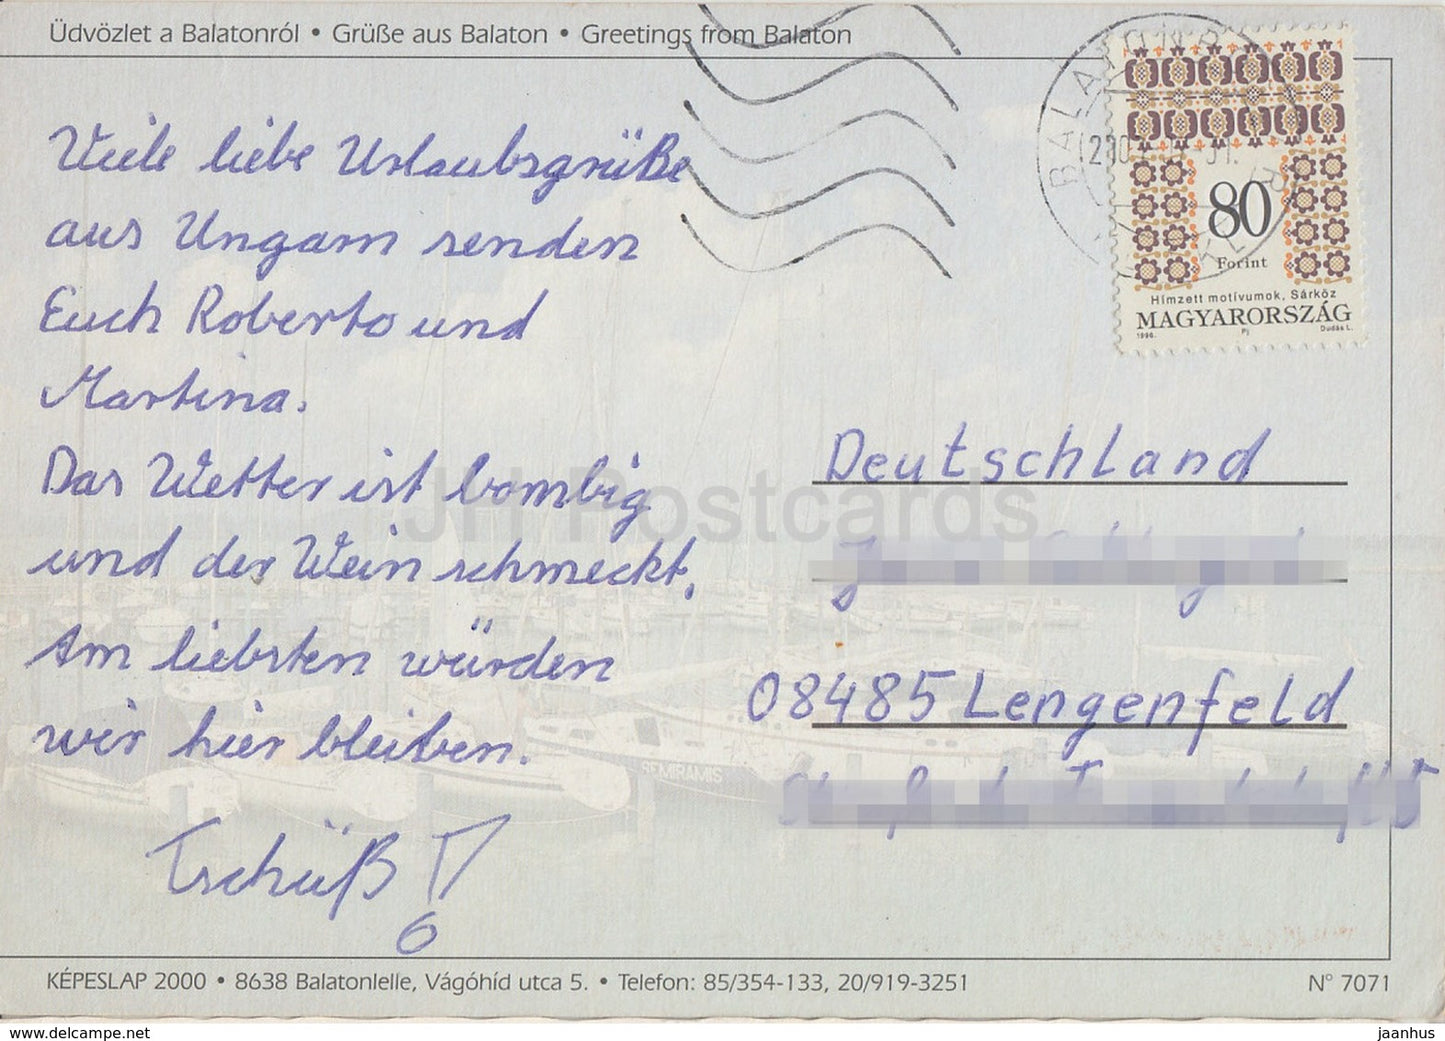 Üdvözlet a Balatonról • Grüße aus Balaton • Greetings from Balaton
Viele liebe Urlaubsgrüße
aus Ungarn senden
Euch Roberto und
Martina.
Das Wetter ist bombig
und der Wein schmeckt.
Am liebsten würden
wir hier bleiben.
Tschüß!
80
Forint
Hímzett motívumok, Sárköz
MAGYARORSZÁG
1996. Pj Dudás L.
Deutschland
08485 Lengenfeld
JH Postcards
SEMIRAMIS
KÉPESLAP 2000 • 8638 Balatonlelle, Vágóhíd utca 5. • Telefon: 85/354-133, 20/919-3251
N° 7071
www.delcampe.net
jaanhus